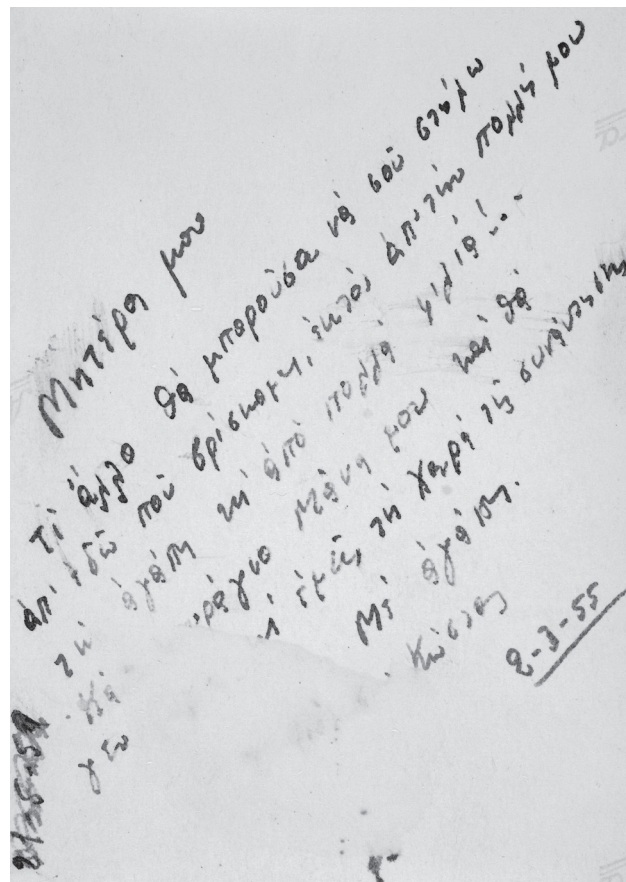 Μητέρα μου
Τί ἄλλο θά μποροῦσα νά σοῦ στείλω
ἀπ' ἐδῶ πού βρίσκομαι, ἐκτός ἀπ' τήν πολλή μου
τή ἀγάπη κι ἀπό πολλά φιλιά!...
Μάνα μου καί θά
ἐμεῖς τή χαρά τῆς συνάντησης
Μέ ἀγάπη.
Κώστας
2-3-55